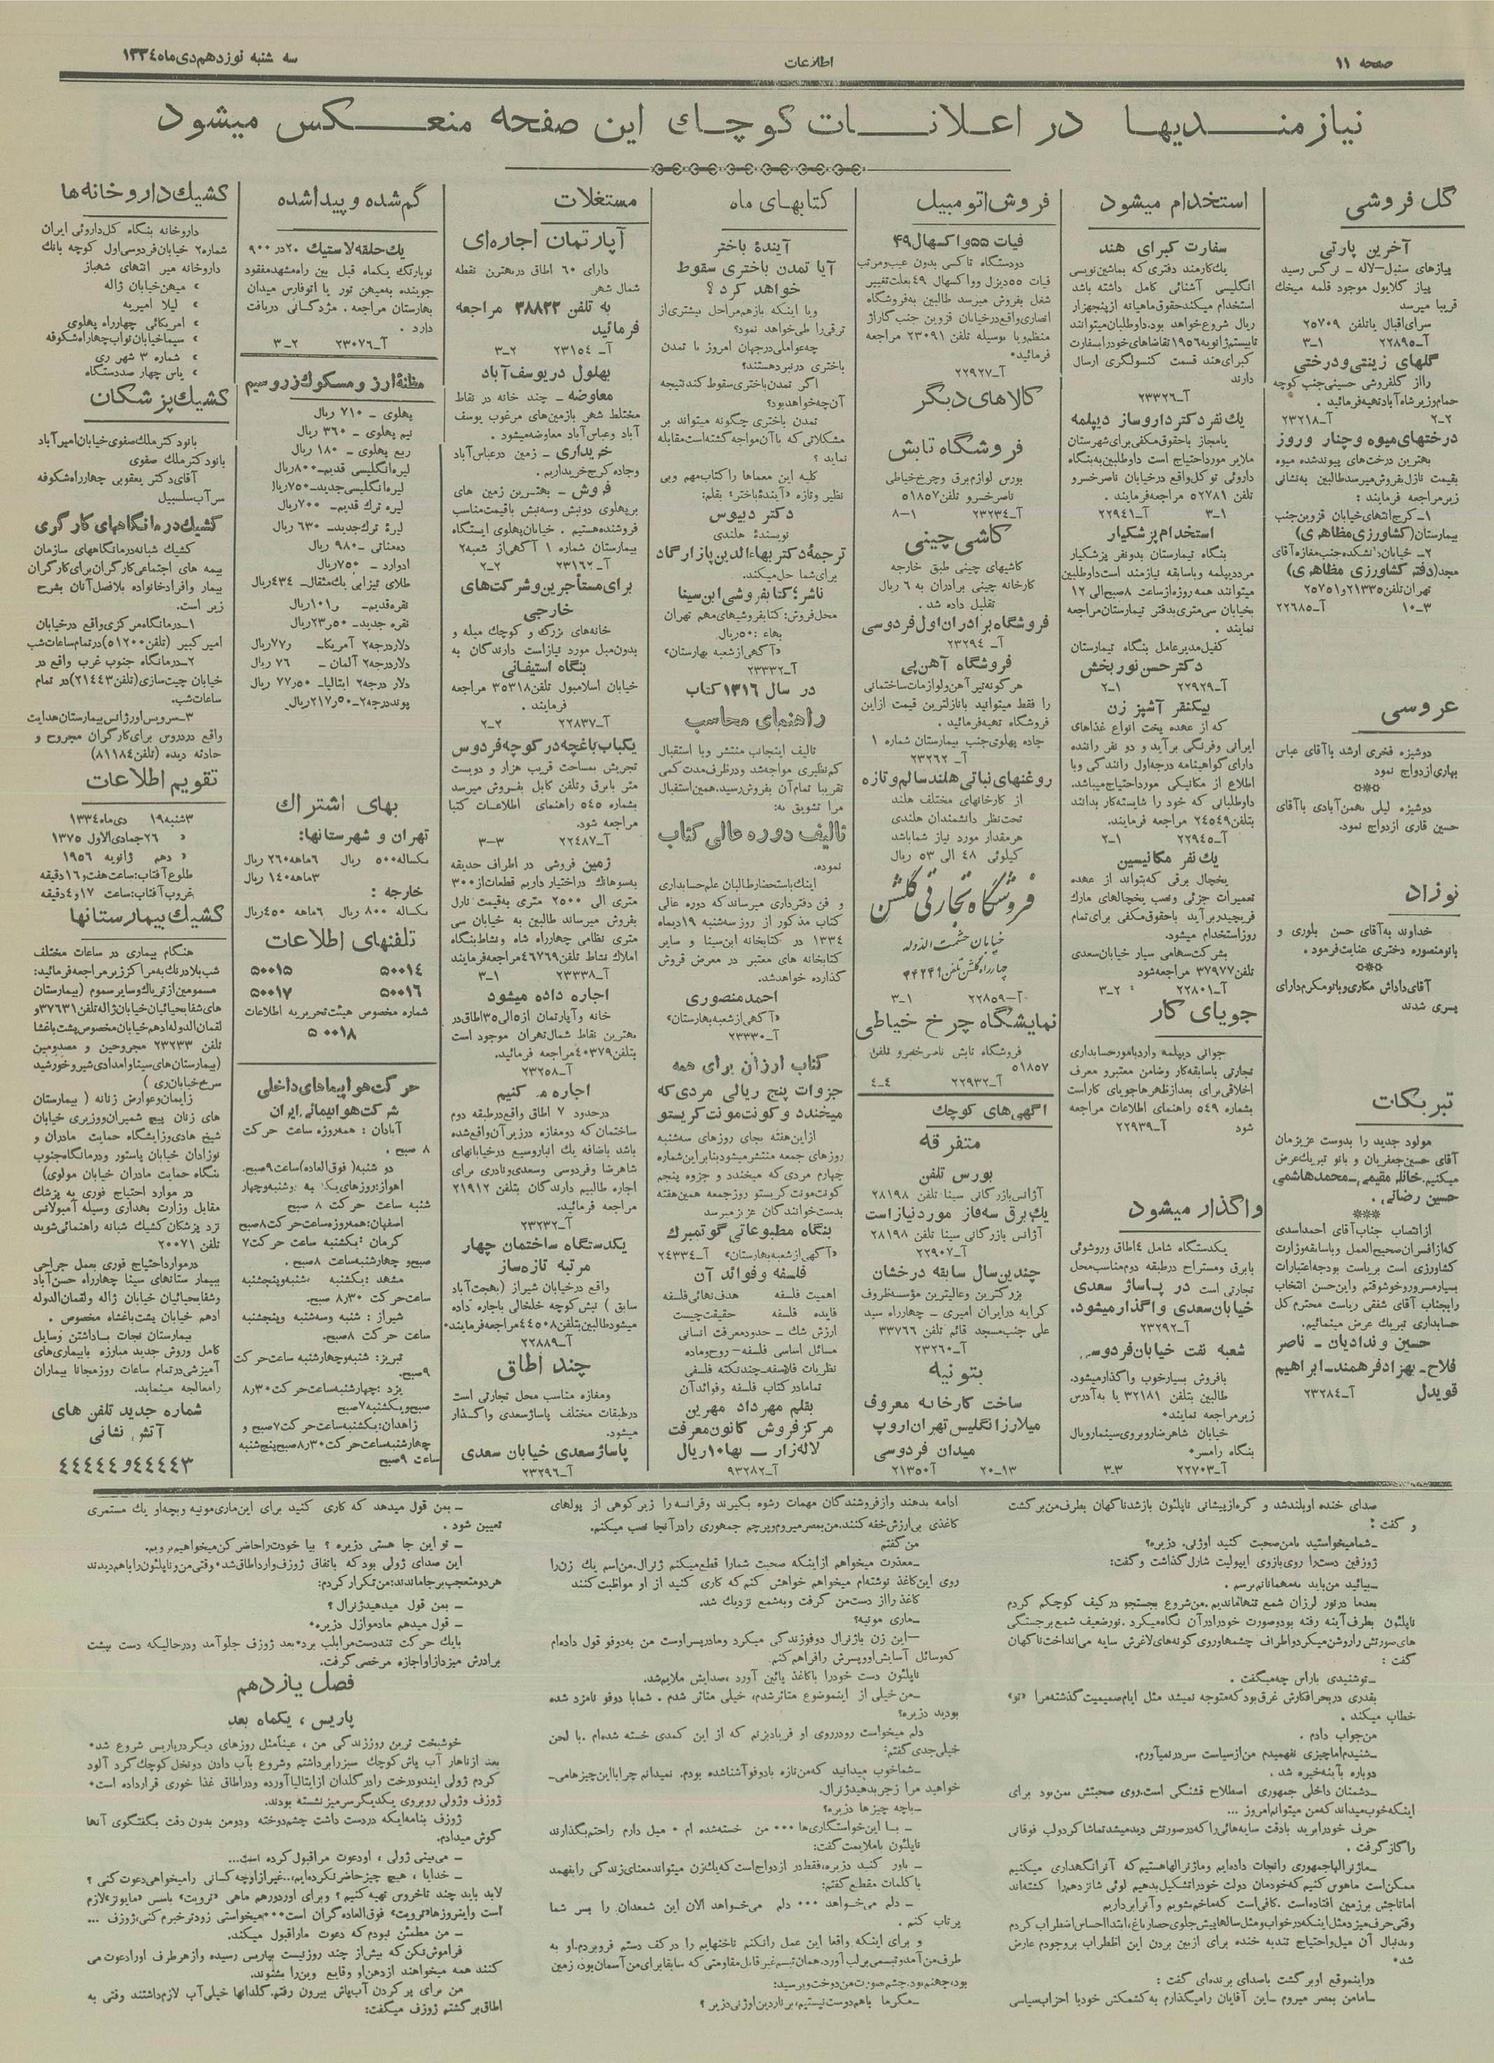 صفحه ۱۱
اطلاعات
سه شنبه نوزدهم دی ماه ۱۳۳۴
نیازمندیها در اعلانات کوچک این صفحه منعکس میشود
گل فروشی
آخرین پارتی
پیازهای سنبل-لاله - نرگس رسید
پیاز گلایول موجود قلمه میخک
قریبا میرسد
سرای اقبال یا تلفن ۲۵۷۰۹
آ-۲۲۸۹۵ ۱-۳
گلهای زینتی و درختی
را از گلفروشی حسینی جنب کوچه
حمام وزیر شاه آباد تهیه فرمائید .
آ-۲۳۲۱۸ ۲-۲
درختهای میوه و چنار وروز
بهترین درخت های پیوند شده میوه
بقیمت نازل بفروش میرسد طالبین به نشانی
زیر مراجعه فرمایند :
۱- کرج انتهای خیابان قزوین جنب
بیمارستان (کشاورزی مظاهری)
مجد (دفتر کشاورزی مظاهری)
تهران تلفن ۲۱۳۳۵ و ۲۵۷۵۱
آ-۲۲۶۸۵ ۳-۱۰
عروسی
دوشیزه فخری ارشد با آقای عباس
بهاری ازدواج نمود
***
دوشیزه لیلی بهمن آبادی با آقای
حسین قاری ازدواج نمود.
نوزاد
خداوند به آقای حسن بلوری و
بانو منصوره دختری عنایت فرمود.
***
آقای داداش مکاری و بانو مکرم دارای
پسری شدند
تبریکات
مولود جدید را بدوست عزیزمان
آقای حسین جعفریان و بانو تبریک عرض
میکنیم. خانلر مقیمی - محمدهاشمی
حسین رضائی .
***
از انتصاب جناب آقای احمد اسدی
که از افسران صحیح العمل و با سابقه وزارت
کشاورزی است بریاست بودجه اعتبارات
بسیار مسرور و خوشوقتم و این حسن انتخاب
را بجناب آقای شفقی ریاست محترم کل
حسابداری تبریک عرض مینمائیم.
حسین وندادیان - ناصر
فلاح - بهزاد فرهمند - ابراهیم
قویدل آ-۲۳۲۸۴
استخدام میشود
سفارت کبرای هند
یک کارمند دفتری که بماشین نویسی
انگلیسی آشنائی کامل داشته باشد
استخدام میکند حقوق ماهیانه از پنجهزار
ریال شروع خواهد بود. داوطلبان میتوانند
تا بیستم ژانویه ۱۹۵۶ تقاضاهای خود را بسفارت
کبرای هند قسمت کنسولگری ارسال
دارند
آ-۲۳۳۲۶
یک نفر دکتر داروساز دیپلمه
یا مجاز با حقوق مکفی برای شهرستان
ملایر مورد احتیاج است داوطلبین به بنگاه
داروئی توکل واقع در خیابان ناصر خسرو
تلفن ۵۲۷۸۱ مراجعه فرمایند .
آ-۲۲۹۴۱ ۱-۳
استخدام پزشکیار
بنگاه تیمارستان بدو نفر پزشکیار
مرد دیپلمه و با سابقه نیازمند است داوطلبین
میتوانند همه روزه از ساعت ۸ صبح الی ۱۲
بخیابان سی متری بدفتر تیمارستان مراجعه
نمایند .
کفیل مدیر عامل بنگاه تیمارستان
دکتر حسن نوربخش
آ-۲۲۹۲۹ ۱-۲
بیکنفر آشپز زن
که از عهده پخت انواع غذاهای
ایرانی و فرنگی برآید و دو نفر راننده
دارای گواهینامه درجه اول رانندگی و با
اطلاع از مکانیکی مورد احتیاج میباشد.
داوطلبانی که خود را شایسته کار بدانند
بتلفن ۲۴۵۴۹ مراجعه فرمایند.
آ-۲۲۹۴۵ ۱-۲
یک نفر مکانیسین
یخچال برقی که بتواند از عهده
تعمیرات جزئی و نصب یخچالهای مارک
فریجیدر برآید با حقوق مکفی برای تمام
روز استخدام میشود.
بشرکت سهامی سیار خیابان سعدی
تلفن ۳۷۹۷۷ مراجعه شود
آ-۲۲۸۰۱ ۲-۳
جویای کار
جوانی دیپلمه وارد بامور حسابداری
تجارتی با سابقه کار و ضامن معتبر و معرف
اخلاقی برای بعدازظهرها جویای کار است
بشماره ۵۴۹ راهنمای اطلاعات مراجعه
شود آ-۲۲۹۳۹
واگذار میشود
یکدستگاه شامل ۴ اطاق و روشوئی
با برق و مستراح در طبقه دوم مناسب محل
تجارتی است در پاساژ سعدی
خیابان سعدی واگذار میشود.
آ-۲۳۲۹۲
شعبه نفت خیابان فردوسی
با فروش بسیار خوب واگذار میشود.
طالبین بتلفن ۳۲۱۸۱ یا به آدرس
زیر مراجعه نمایند.
خیابان شاهرضا روبروی سینما رویال
بنگاه رامسر.
آ-۲۲۷۰۳ ۳-۳
فروش اتومبیل
فیات ۵۵ و اکسهال ۴۹
دو دستگاه تاکسی بدون عیب و مرتب
فیات ۵۵ دیزل و واکسهال ۴۹ بعلت تغییر
شغل بفروش میرسد طالبین به فروشگاه
انصاری واقع در خیابان قزوین جنب گاراژ
منظم و یا بوسیله تلفن ۲۳۰۹۱ مراجعه
فرمائید.
آ-۲۲۹۲۷
کالاهای دیگر
فروشگاه تابش
بورس لوازم برق و چرخ خیاطی
ناصر خسرو تلفن ۵۱۸۵۷
آ-۲۳۲۳۴ ۱-۸
کاشی چینی
کاشیهای چینی طبق خارجه
کارخانه چینی برادران به ۶ ریال
تقلیل داده شد .
فروشگاه برادران اول فردوسی
آ-۲۳۲۹۴
فروشگاه آهن پی
هرگونه تیر آهن و لوازمات ساختمانی
را فقط میتوانید با نازلترین قیمت از این
فروشگاه تهیه فرمائید .
جاده پهلوی جنب بیمارستان شماره ۱
آ-۲۳۲۶۲
روغنهای نباتی هلند سالم و تازه
از کارخانهای مختلف هلند
تحت نظر دانشمندان هلندی
هر مقدار مورد نیاز شما باشد
کیلوئی ۴۸ الی ۵۳ ریال
فروشگاه تجارتی گلشن
خیابان حشمت الدوله
چهارراه گلشن تلفن ۴۴۲۴۹
آ-۲۲۸۵۹ ۱-۳
نمایشگاه چرخ خیاطی
فروشگاه تابش ناصر خسرو تلفن
۵۱۸۵۷
آ-۲۲۹۳۲ ۴-۴
آگهی های کوچک
متفرقه
بورس تلفن
آژانس بازرگانی سینا تلفن ۲۸۱۹۸
یک برق سه فاز مورد نیاز است
آژانس بازرگانی سینا تلفن ۲۸۱۹۸
آ-۲۲۹۰۷
چندین سال سابقه درخشان
بزرگترین و عالیترین مؤسسه ظروف
کرایه در ایران امیری - چهارراه سید
علی جنب مسجد قائم تلفن ۳۳۷۶۶
آ-۲۳۲۶۰
بتونیه
ساخت کارخانه معروف
میلارز انگلیس تهران اروپ
میدان فردوسی
آ-۲۱۳۵۰ ۱۳-۲۰
کتابهای ماه
آیندهٔ باختر
آیا تمدن باختری سقوط
خواهد کرد ؟
و یا اینکه باز هم مراحل بیشتری از
ترقی را طی خواهد نمود؟
چه عواملی در جهان امروز با تمدن
باختری در نبرد هستند؟
اگر تمدن باختری سقوط کند نتیجه
آن چه خواهد بود؟
تمدن باختری چگونه میتواند بر
مشکلاتی که با آن مواجه گشته است مقابله
نماید ؟
کلیه این معماها را کتاب مهم و بی
نظیر و تازه «آیندهٔ باختر» بقلم:
دکتر دبیوس
نویسندهٔ هلندی
ترجمهٔ دکتر بهاءالدین پازارگاد
برای شما حل میکند.
ناشر: کتابفروشی ابن سینا
محل فروش: کتابفروشیهای مهم تهران
بهاء : ۵۰ ریال
«آگهی از شعبه بهارستان»
آ-۲۳۳۳۲
در سال ۱۳۱۶ کتاب
راهنمای محاسب
تالیف اینجانب منتشر و با استقبال
کم نظیری مواجه شد و در ظرف مدت کمی
تقریبا تمام آن بفروش رسید. همین استقبال
مرا تشویق به:
تالیف دوره عالی کتاب
نموده.
اینک باستحضار طالبان علم حسابداری
و فن دفترداری میرساند که دوره عالی
کتاب مذکور از روز سه شنبه ۱۹ دیماه
۱۳۳۴ در کتابخانه ابن سینا و سایر
کتابخانه های معتبر در معرض فروش
گذارده خواهد شد.
احمد منصوری
«آگهی از شعبه بهارستان»
آ-۲۳۳۳۰
کتاب ارزان برای همه
جزوات پنج ریالی مردی که
میخندد و کونت مونت کریستو
از این هفته بجای روزهای سه شنبه
روزهای جمعه منتشر میشود بنابراین شماره
چهارم مردی که میخندد و جزوه پنجم
کونت مونت کریستو روز جمعه همین هفته
بدست خوانندگان عزیز میرسد
بنگاه مطبوعاتی گوتمبرک
«آگهی از شعبه بهارستان» آ-۲۴۳۳۴
فلسفه و فوائد آن
اهمیت فلسفه هدف نهائی فلسفه
فایده فلسفه حقیقت چیست
ارزش شک - حدود معرفت انسانی
مسائل اساسی فلسفه - روح و ماده
نظریات فلاسفه - چند نکته فلسفی
تماما در کتاب فلسفه و فوائد آن
بقلم مهرداد مهرین
مرکز فروش کانون معرفت
لاله زار - بها ۱۰ ریال
آ-۹۳۲۸۲
مستغلات
آپارتمان اجاره ای
دارای ۶۰ اطاق در بهترین نقطه
شمال شهر
به تلفن ۳۸۸۲۲ مراجعه
فرمائید
آ-۲۳۱۵۴ ۲-۳
بهلول در یوسف آباد
معاوضه - چند خانه در نقاط
مختلط شهر بازمین های مرغوب یوسف
آباد و عباس آباد معاوضه میشود.
خریداری - زمین در عباس آباد
و جاده کرج خریداریم.
فروش - بهترین زمین های
بر پهلوی دو نبش و سه نبش با قیمت مناسب
فروشنده هستیم . خیابان پهلوی ایستگاه
بیمارستان شماره ۱ آگهی از شعبه ۲
آ-۲۳۱۶۲ ۲-۲
برای مستأجرین و شرکت های
خارجی
خانه های بزرگ و کوچک مبله و
بدون مبل مورد نیاز است دارندگان به
بنگاه استیفانی
خیابان اسلامبول تلفن ۳۵۳۱۸ مراجعه
فرمایند .
آ-۲۲۸۳۷ ۲-۲
یکباب باغچه در کوچه فردوس
تجریش بمساحت قریب هزار و دویست
متر با برق و تلفن کابل بفروش میرسد
بشماره ۵۴۵ راهنمای اطلاعات کتبا
مراجعه شود.
آ-۲۲۴۸۷ ۳-۳
زمین فروشی در اطراف حدیقه
به سوهانک در اختیار داریم قطعات از ۳۰۰
متری الی ۲۵۰۰ متری به قیمت نازل
بفروش میرساند طالبین به خیابان سی
متری نظامی چهارراه شاه و نشاط بنگاه
املاک نشاط تلفن ۴۶۷۶۹ مراجعه فرمایند
آ-۲۳۳۳۸ ۱-۳
اجاره داده میشود
خانه و آپارتمان از ۵ الی ۳۵ اطاق در
بهترین نقاط شمال تهران موجود است
بتلفن ۴۰۳۷۹ مراجعه فرمائید.
آ-۲۳۲۵۸
اجاره میکنیم
در حدود ۷ اطاق واقع در طبقه دوم
ساختمان که دو مغازه در زیر آن واقع شده
باشد باضافه یک انبار وسیع در خیابانهای
شاهرضا و فردوسی و سعدی و نادری برای
اجاره طالبیم دارندگان بتلفن ۲۱۹۱۲
مراجعه فرمائید.
آ-۲۳۲۳۲
یکدستگاه ساختمان چهار
مرتبه تازه ساز
واقع در خیابان شیراز (بهجت آباد
سابق ) نبش کوچه خلخالی باجاره داده
میشود طالبین بتلفن ۴۴۵۰۸ مراجعه فرمایند.
آ-۲۲۸۸۹
چند اطاق
و مغازه مناسب محل تجارتی است
در طبقات مختلف پاساژ سعدی واگذار
میشود.
پاساژ سعدی خیابان سعدی
آ-۲۳۲۹۶
گم شده و پیدا شده
یک حلقه لاستیک ۲۰ در ۹۰۰
نو بارتک یکماه قبل بین راه مشهد مفقود
جوینده به میهن تور یا اتو فارس میدان
بهارستان مراجعه . مژدگانی دریافت
دارد .
آ-۲۳۰۷۶ ۲-۳
مظنهٔ ارز و مسکوک زر و سیم
پهلوی - ۷۱۰ ریال
نیم پهلوی - ۳۶۰ ریال
ربع پهلوی - ۱۸۰ ریال
لیره انگلیسی قدیم - ۸۰۰ ریال
لیره انگلیسی جدید - ۷۵۰ ریال
لیره ترک قدیم - ۷۰۰ ریال
لیرهٔ ترک جدید - ۶۳۰ ریال
ده مناتی - ۹۸۰ ریال
ادوارد - ۷۵۰ ریال
طلای تیزابی یک مثقال - ۴۳۴ ریال
نقره قدیم - ۱۰۱ ریال
نقره جدید - ۵۰ر۲۳ ریال
دلار درجه ۲ آمریکا - ۷۷ ریال
دلار درجه ۲ آلمان - ۷۶ ریال
دلار درجه ۲ ایتالیا - ۵۰ر۷۷ ریال
پوند درجه ۲ - ۵۰ر۲۱۷ ریال
بهای اشتراک
تهران و شهرستانها:
یکساله ۵۰۰ ریال ۶ ماهه ۲۶۰ ریال
۳ ماهه ۱۴۰ ریال
خارجه :
یکساله ۸۰۰ ریال ۶ ماهه ۴۵۰ ریال
تلفنهای اطلاعات
۵۰۰۱۴ ۵۰۰۱۵
۵۰۰۱۶ ۵۰۰۱۷
شماره مخصوص هیئت تحریریه اطلاعات
۵۰۰۱۸
حرکت هواپیماهای داخلی
شرکت هواپیمائی ایران
آبادان : همه روزه ساعت حرکت
۸ صبح .
دو شنبه ( فوق العاده) ساعت ۹ صبح.
شنبه ساعت حرکت ۸ صبح
اصفهان: همه روزه ساعت حرکت ۸ صبح
کرمان : یکشنبه ساعت حرکت ۷
صبح و چهارشنبه ساعت ۸ صبح .
ساعت حرکت ۸٫۳۰ صبح.
شیراز : شنبه و سه شنبه و پنجشنبه
ساعت حرکت ۸ صبح.
تبریز: شنبه و چهارشنبه ساعت حرکت
۹ صبح.
یزد :چهارشنبه ساعت حرکت ۸٫۳۰
صبح و یکشنبه ۷ صبح
زاهدان: یکشنبه ساعت حرکت ۷ صبح و
چهارشنبه ساعت حرکت ۸٫۳۰ صبح پنج شنبه
ساعت ۹ صبح
کشیک داروخانه ها
داروخانه بنگاه کل داروئی ایران
شماره ۲ خیابان فردوسی اول کوچه بانک
داروخانه میر انتهای شهباز
» میهن خیابان ژاله
» لیلا امیریه
» امریکائی چهارراه پهلوی
» سیما خیابان نواب چهارراه شکوفه
» شماره ۳ شهر ری
» یاس چهار صد دستگاه
کشیک پزشکان
بانو دکتر ملک صفوی خیابان امیر آباد
بانو دکتر ملک صفوی
آقای دکتر یعقوبی چهارراه شکوفه
سر آب سلسبیل
کشیک درمانگاههای کارگری
کشیک شبانه درمانگاههای سازمان
بیمه های اجتماعی کارگران برای کارگران
بیمار و افراد خانواده بلافصل آنان بشرح
زیر است.
۱- درمانگاه مرکزی واقع در خیابان
امیر کبیر (تلفن ۵۱۲۰۰) در تمام ساعات شب
۲- درمانگاه جنوب غرب واقع در
خیابان چیت سازی (تلفن ۲۱۴۴۳) در تمام
ساعات شب.
۳- سرویس اورژانس بیمارستان هدایت
واقع در دروس برای کارگران مجروح و
حادثه دیده (تلفن ۸۱۱۸۴)
تقویم اطلاعات
۳ شنبه ۱۹ دی ماه ۱۳۳۴
» ۲۶ جمادی الاول ۱۳۷۵
» دهم ژانویه ۱۹۵۶
طلوع آفتاب: ساعت هفت و ۱۶ دقیقه
غروب آفتاب: ساعت ۱۷ و ۴ دقیقه
کشیک بیمارستانها
هنگام بیماری در ساعات مختلف
شب بلادرنگ به مراکز زیر مراجعه فرمائید:
مسمومین از تریاک و سایر سموم (بیمارستان
های شفا یحیائیان خیابان ژاله تلفن ۳۷۶۳۱ و
لقمان الدوله ادهم خیابان مخصوص پشت باغشا
تلفن ۲۳۲۳۳ مجروحین و مصدومین
(بیمارستان های سینا و امدادی شیر و خورشید
سرخ خیابان ری )
زایمان و عوارض زنانه ( بیمارستان
های زنان پیچ شمیران و وزیری خیابان
شیخ هادی و زایشگاه حمایت مادران و
نوزادان خیابان پاستور و درمانگاه جنوب
بنگاه حمایت مادران خیابان مولوی)
در موارد احتیاج فوری به پزشک
مقابل وزارت بهداری وسیله آمبولانس
نزد پزشکان کشیک شبانه راهنمائی شوید
تلفن ۲۰۰۷۱
در موارد احتیاج فوری بعمل جراحی
ببیمارستانهای سینا چهارراه حسن آباد
و شفا یحیائیان خیابان ژاله و لقمان الدوله
ادهم خیابان پشت باغشاه مخصوص .
بیمارستان نجات با داشتن وسایل
کامل و روش جدید مبارزه با بیماری های
آمیزشی در تمام ساعات روز مجانا بیماران
را معالجه مینماید.
شماره جدید تلفن های
آتش نشانی
۴۴۴۴۳ و ۴۴۴۴۴
صدای خنده او بلند شد و گره از پیشانی ناپلئون باز شد ناگهان بطرف من برگشت
و گفت :
- شما میخواستید با من صحبت کنید اوژنی، دزیره؟
ژوزفین دست را روی بازوی ایپولیت شارل گذاشت و گفت:
- بیائید من باید به مهمانانم برسم .
بعد ما در نور لرزان شمع تنها ماندیم. من شروع بجستجو در کیف کوچکم کردم
ناپلئون بطرف آینه رفته بود و صورت خود را در آن نگاه میکرد. نور ضعیف شمع برجستگی
های صورتش را روشن میکرد و اطراف چشمها و روی گونه های لاغرش سایه می انداخت ناگهان
گفت :
- تو شنیدی باراس چه میگفت .
بقدری در بحر افکارش غرق بود که متوجه نمیشد مثل ایام صمیمیت گذشته مرا «تو»
خطاب میکند .
من جواب دادم .
- شنیدم اما چیزی نفهمیدم من از سیاست سر در نمیآورم.
دوباره بآینه خیره شد .
- دشمنان داخلی جمهوری اصطلاح قشنگی است. روی صحبتش بمن بود برای
اینکه خوب میداند که من میتوانم امروز ...
حرف خود را برید با دقت سایه هائی را که در صورتش دیده میشد تماشا کرد و لب فوقانی
را گاز گرفت .
- ما ژنرالها جمهوری را نجات داده ایم و ما ژنرالها هستیم که آنرا نگهداری میکنیم
ممکن است ما هوس کنیم که خودمان دولت خود را تشکیل بدهیم لوئی شانزدهم را کشته اند
اما تاجش بر زمین افتاده است . کافی است که ما خم بشویم و آنرا برداریم
وقتی حرف میزد مثل اینکه در خواب و مثل سالها پیش جلوی حصار باغ، ابتدا احساس اضطراب کردم
و بدنبال آن میل و احتیاج تند به خنده برای از بین بردن این اظطراب بر وجودم عارض
شد.
در اینموقع او برگشت با صدای برنده ای گفت :
- اما من بمصر میروم - این آقایان را میگذارم به کشمکش خود با احزاب سیاسی
ادامه بدهند و از فروشندگان مهمات رشوه بگیرند و فرانسه را زیر کوهی از پولهای
کاغذی بی ارزش خفه کنند. من بمصر میروم و پرچم جمهوری را در آنجا نصب میکنم.
من گفتم
- معذرت میخواهم از اینکه صحبت شما را قطع میکنم ژنرال. من اسم یک زن را
روی این کاغذ نوشته ام میخواهم خواهش کنم که کاری کنید از او مواظبت کنند
کاغذ را از دست من گرفت و به شمع نزدیک شد.
- ماری مونیه؟
- این زن با ژنرال دوفو زندگی میکرد و مادر پسر اوست من به دوفو قول داده ام
که وسائل آسایش او و پسرش را فراهم کنم
ناپلئون دست خود را با کاغذ پائین آورد، صدایش ملایم شد.
- من خیلی از اینموضوع متاثر شدم، خیلی متاثر شدم . شما با دوفو نامزد شده
بودید دزیره؟
دلم میخواست رو در روی او فریاد بزنم که از این کمدی خسته شده ام . با لحن
خیلی جدی گفتم:
- شما خوب میدانید که من تازه با دوفو آشنا شده بودم. نمیدانم چرا با این چیزها می-
خواهید مرا زجر بدهید ژنرال.
- با چه چیزها دزیره؟
- با این خواستگاری ها ... من خسته شده ام . میل دارم راحتم بگذارند
ناپلئون با ملایمت گفت:
- باور کنید دزیره، فقط در ازدواج است که یک زن میتواند معنای زندگی را بفهمد
با کلمات مقطع گفتم:
- دلم می خواهد ... دلم می خواهد الان این شمعدان را بسر شما
پرتاب کنم .
و برای اینکه واقعا این عمل را نکنم ناخنهایم را در کف دستم فرو بردم. او به
طرف من آمد و تبسمی بر لب آورد. همان تبسم غیر قابل مقاومتی که سابقا برای من آسمان بود، زمین
بود، جهنم بود. چشم بصورت من دوخت و پرسید:
- مگر ما با هم دوست نیستیم، برناردین اوژنی دزیره ؟
- بمن قول میدهد که کاری کنید برای این ماری مونیه و بچه او یک مستمری
تعیین شود .
- تو این جا هستی دزیره ؟ بیا خودت را حاضر کن میخواهیم برویم.
این صدای ژولی بود که باتفاق ژوزف وارد اطاق شد. وقتی من و ناپلئون را با هم دیدند
هر دو متعجب بر جا ماندند: من تکرار کردم:
- بمن قول میدهید ژنرال ؟
- قول میدهم مادموازل دزیره.
با یک حرکت تند دست مرا بلب برد. بعد ژوزف جلو آمد و در حالیکه دست بپشت
برادرش میزد از او اجازه مرخصی گرفت.
فصل یازدهم
پاریس ، یکماه بعد
خوشبخت ترین روز زندگی من ، عیناً مثل روزهای دیگر در پاریس شروع شد.
بعد از ناهار آب پاش کوچک سبز را برداشتم و شروع بآب دادن دو نخل کوچک گرد آلود
کردم ژولی ایندو درخت را در گلدان از ایتالیا آورده و در اطاق غذا خوری قرار داده است.
ژوزف و ژولی روبروی یکدیگر سر میز نشسته بودند.
ژوزف بنامه ایکه در دست داشت چشم دوخته و دو من بدون دقت بگفتگوی آنها
گوش میدادم.
- می بینی ژولی ، او دعوت مرا قبول کرده است...
- خدایا ، هیچ چیز حاضر نکرده ایم... غیر از او چه کسانی را میخواهی دعوت کنی ؟
لابد باید چند تا خروس تهیه کنیم ؟ و برای اوردورهم ماهی «ترویت» باسس «مایونز» لازم
است و اینروزها «ترویت» فوق العاده گران است... میخواستی زودتر خبرم کنی، ژوزف ...
- من مطمئن نبودم که دعوت ما را قبول میکند.
فراموش نکن که بیش از چند روز نیست بپاریس رسیده و از هر طرف او را دعوت می
کنند همه میخواهند از دهن او وقایع وین را بشنوند.
من برای پر کردن آب پاش بیرون رفتم. گلدانها خیلی آب لازم داشتند وقتی به
اطاق برگشتم ژوزف میگفت: